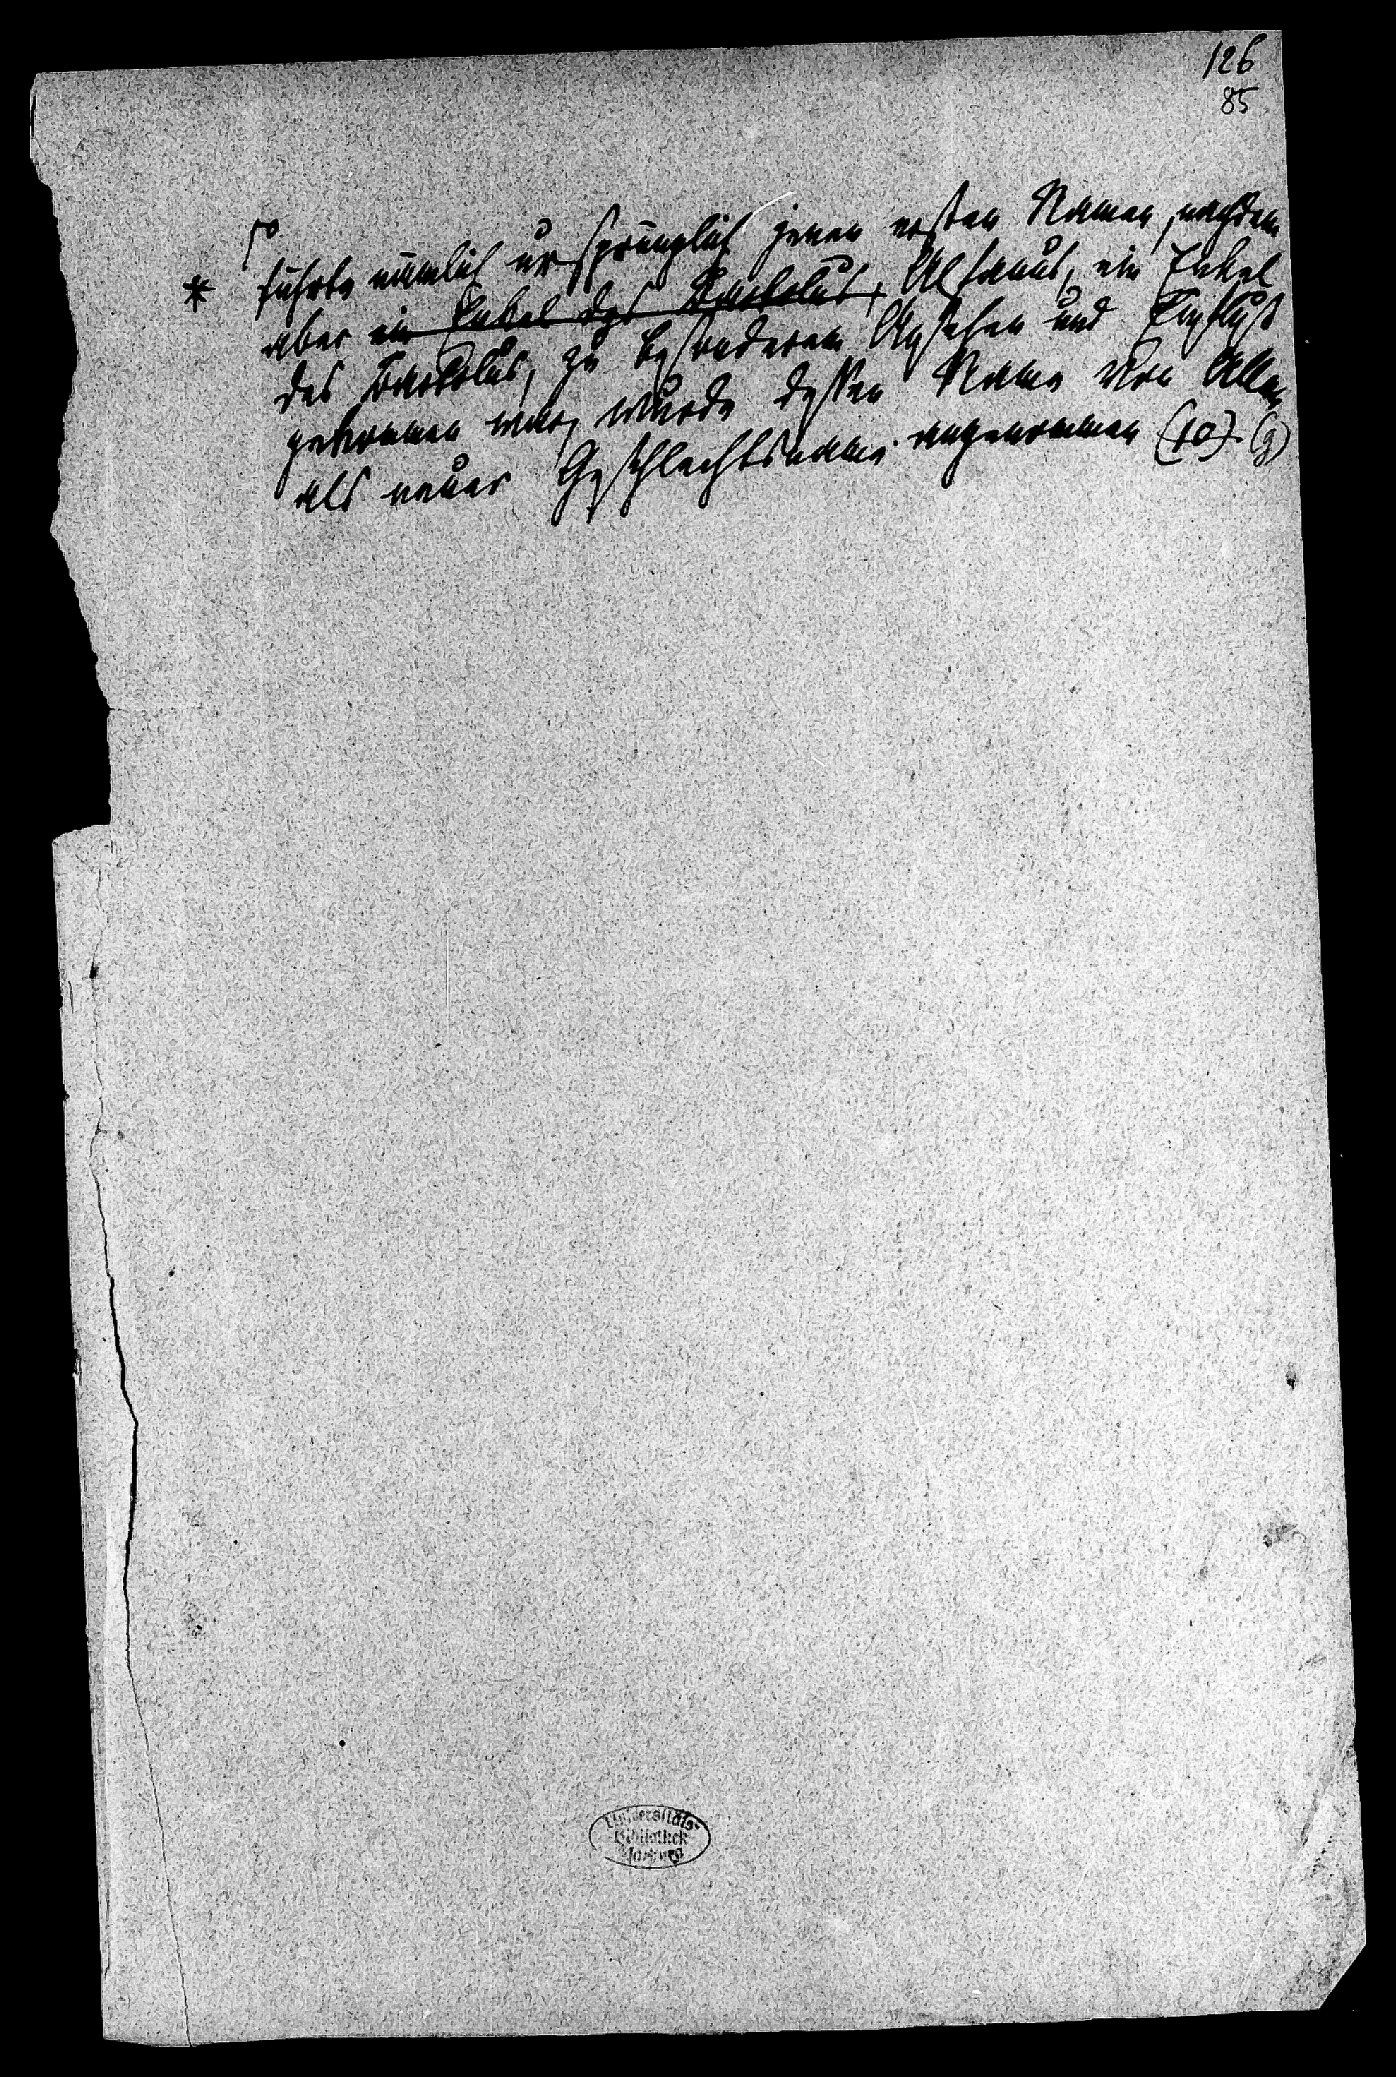 126
85
* führte nämlich ursprünglich jenen ersten Namen, nachdem
aber ein Enkel des Bartolus, Alfanus, ein Enkel
des Bartolus, zu besonderem Ansehen und Einfluß
gekommen war, wurde dessen Name von Allen
als neuer Geschlechtsname angenommen (10). (g)
Universitäts-
Bibliothek
Marburg